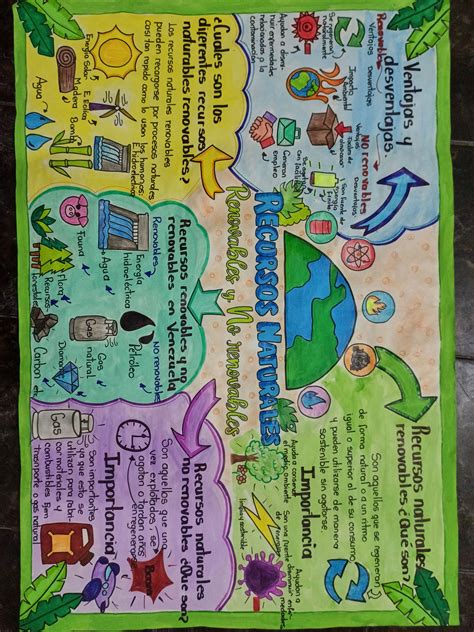 RECURSOS NATURALES
Renovables y No renovables
¿Cuales son los
diferentes recursos
naturales renovables?
Los recursos naturales renovables
pueden recargarse por procesos naturales
casi tan rapido como lo usan los humanos.
Energía Solar
E. Eolica
Madera
Bambú
E. hidroeléctrica
Agua
Ventajas y
desventajas
Renovables
Ventajas
Desventajas
Se regeneran
naturalmente
Impacto
Ambiental
Ayudan a dismi-
nuir enfermedades
relacionadas a la
contaminación
Generan
Empleo
NO renovables
Ventajas
Desventajas
Faciles de
almacenar
Son fuente de
Energia
Se agotan
Recursos renovables y no
renovables en Venezuela
Renovables
Energía
hidroeléctrica
Agua
Fauna
Flora
Recursos
forestales
No renovables
Petróleo
Gas
natural
Gas
Diamante
Carbon etc.
Recursos naturales
no renovables ¿Que son?
Son aquellos que una
vez explotados, se
agotan o tardan años
en regenerarse
Importancia
Son importantes
ya que esto se
utilizan para fabri-
car materiales y
combustibles Ejem
transporte o gas natural
Gas
Recursos naturales
renovables ¿Que son?
Son aquellos que se regeneran
de forma natural o a un ritmo
igual o superior al de su consumo
y pueden utilizarse de manera
sostenible sin agotarse.
Importancia
Ayuda a conservar
el medio ambiente
Son una fuente
de energía
limpia
Ayudan a
disminuir enfer-
medades